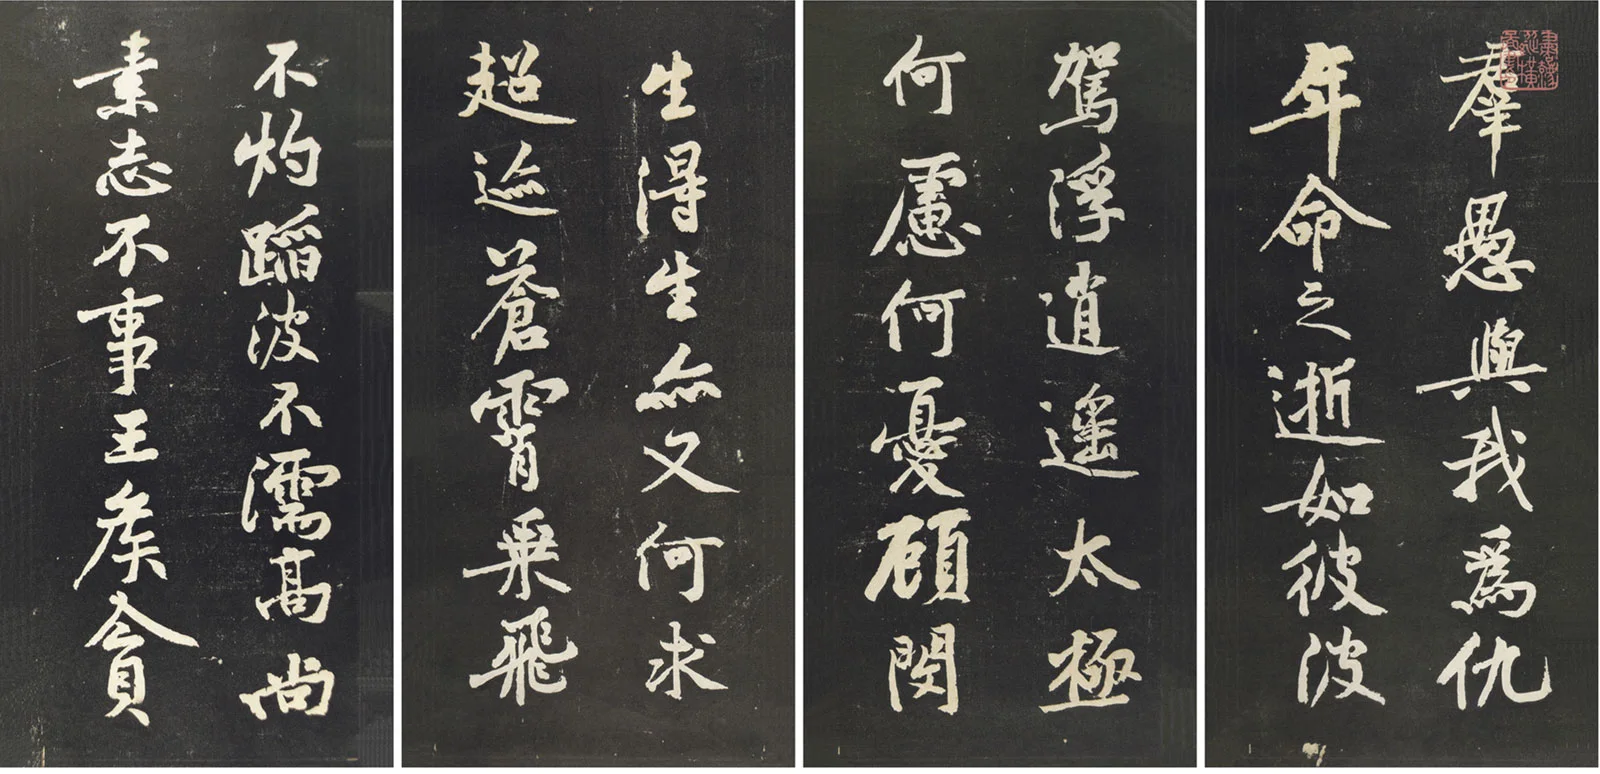 羣愚與我爲仇
年命之逝如彼波
駕浮逍遙太極
何慮何憂顧閔
生得生亦又何求
超迹蒼霄乘飛
不灼蹈波不濡高尚
素志不事王矦貪